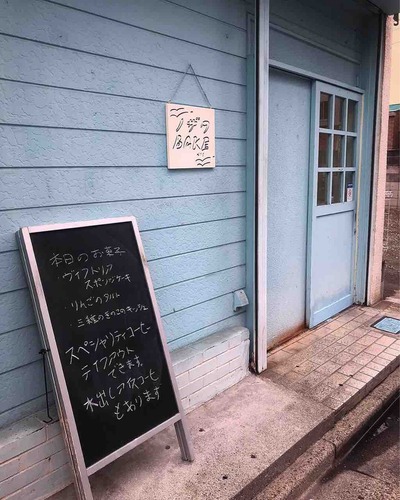 ノザワ
BAKE
本日のお菓子
・ヴィクトリア
スポンジケーキ
・りんごのタルト
・三種のきのこのキッシュ
スペシャリティコーヒー
テイクアウト
できます。
水出しアイスコーヒー
もあります